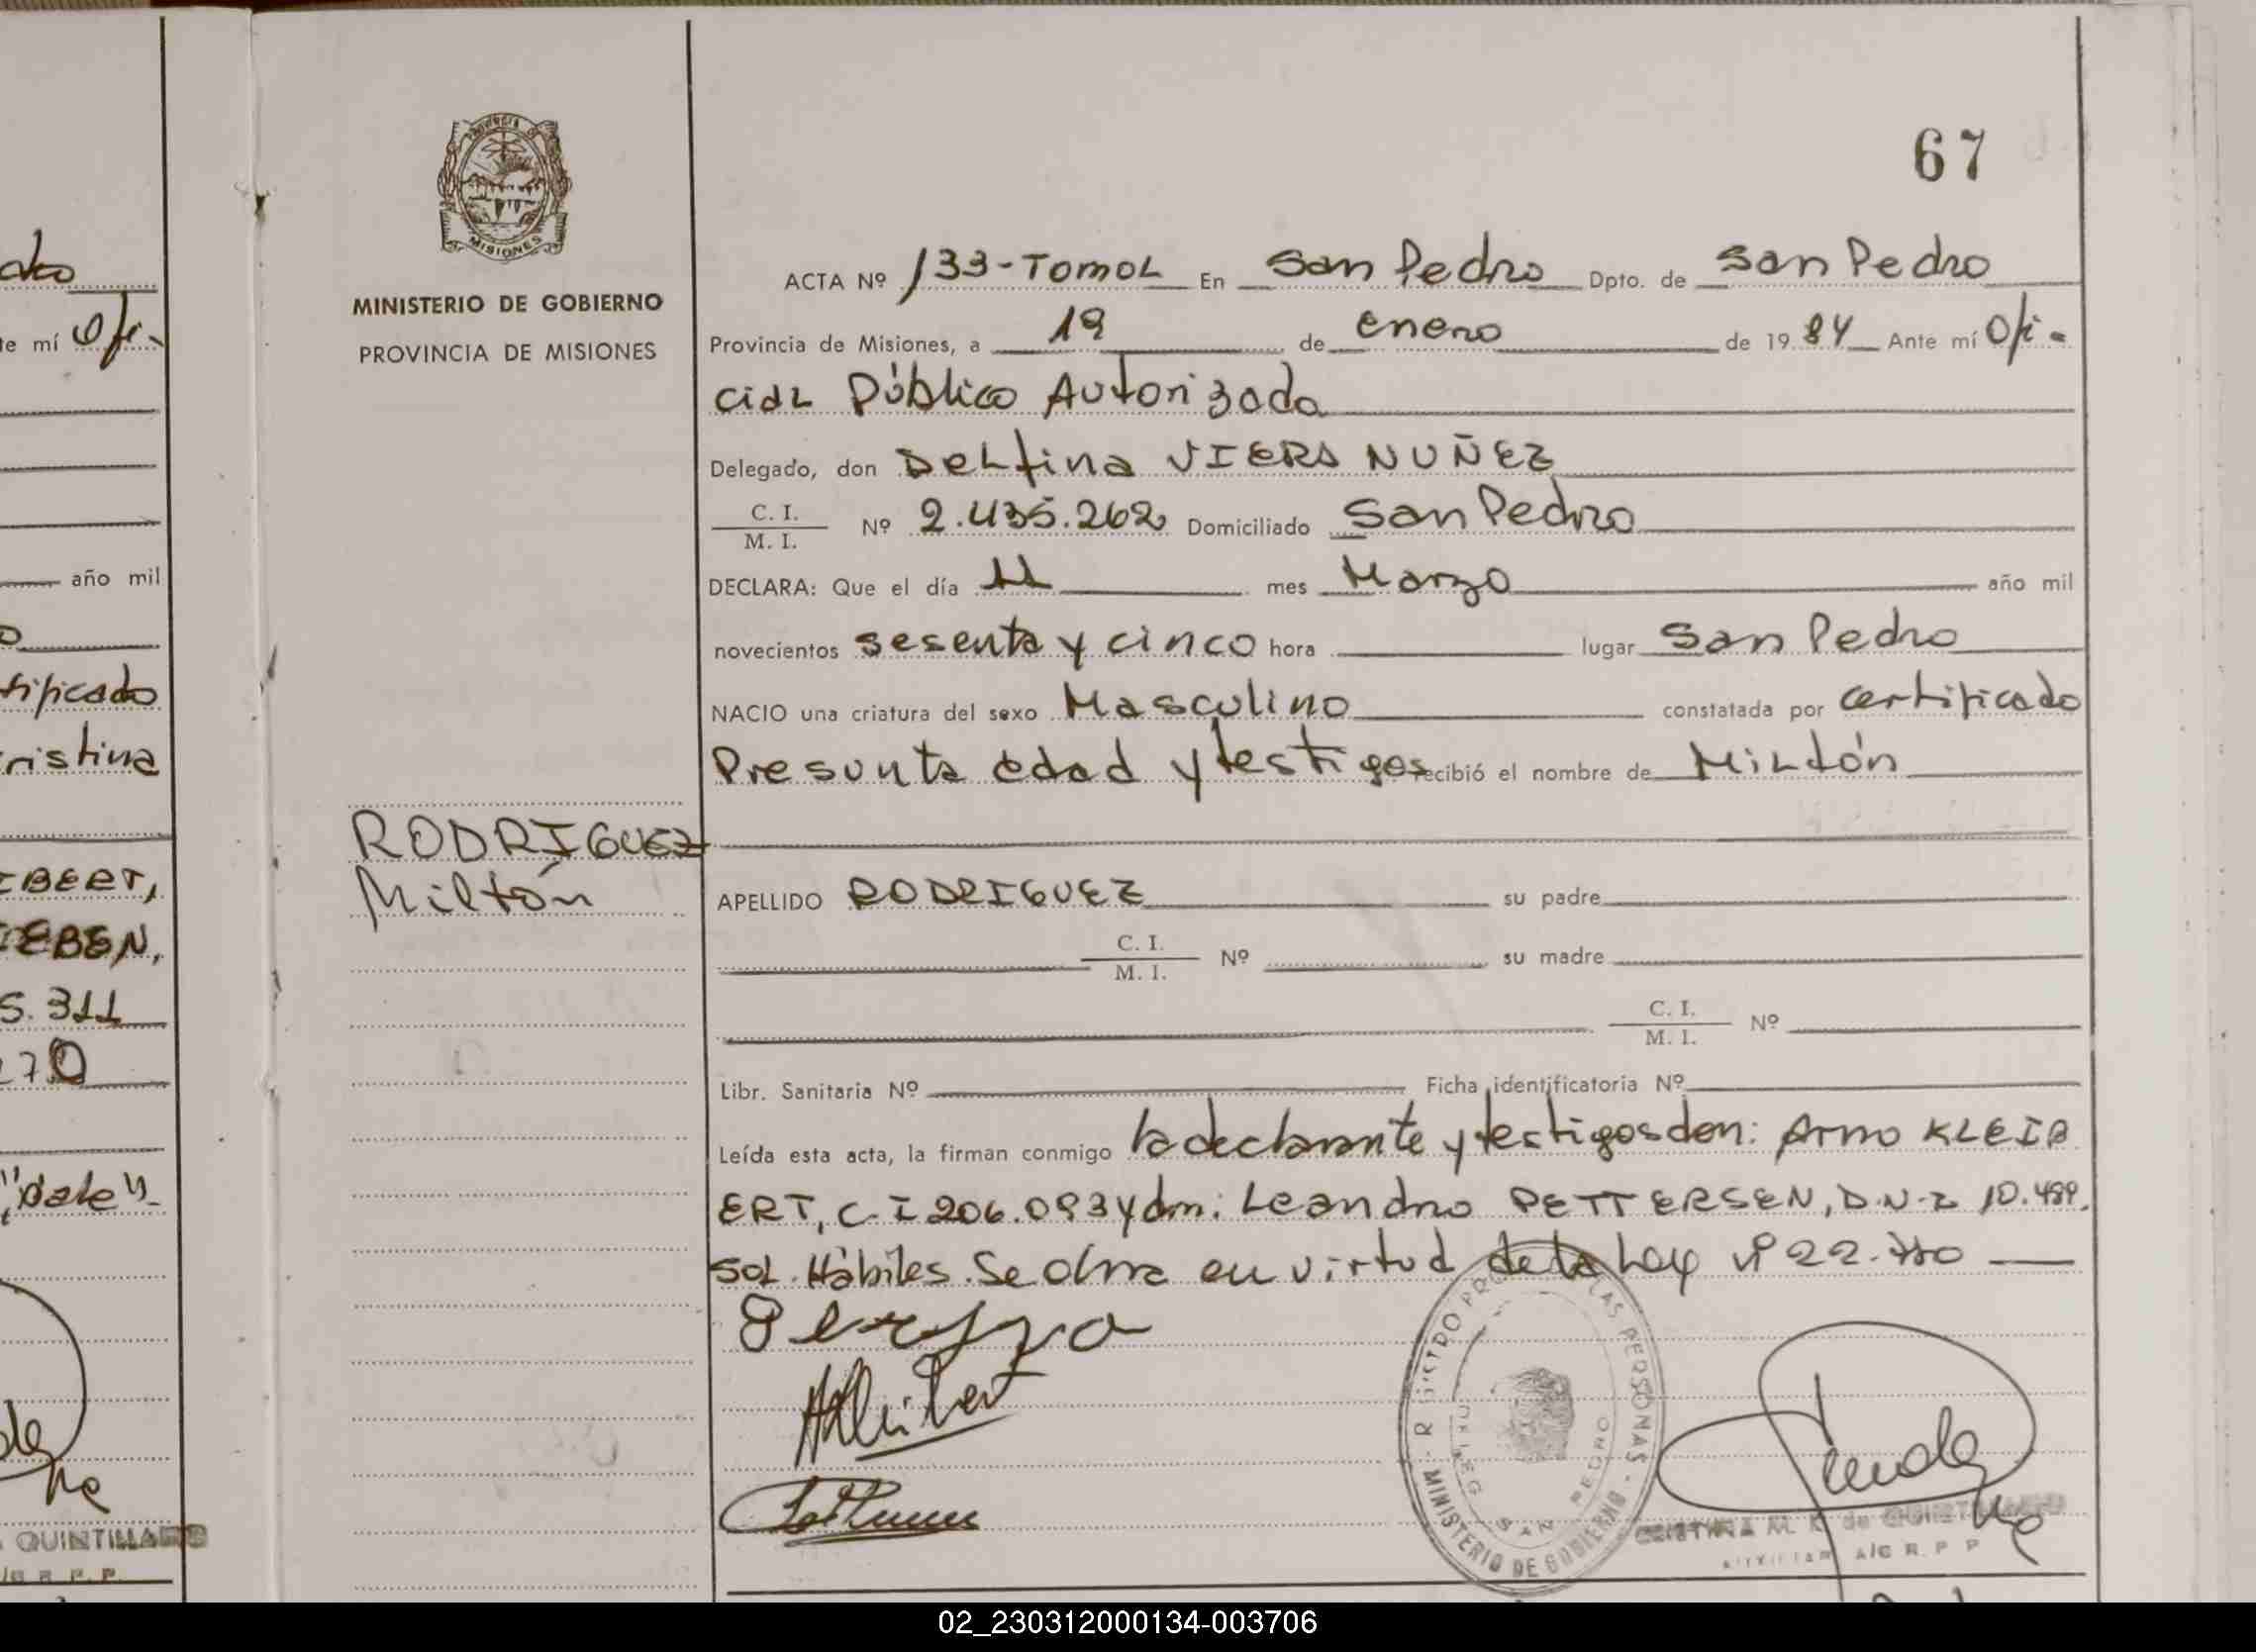 ato
te mí Ofi-
año mil
o
tificado
ristina
IBERT,
IEBEN,
5.311
270
"Dale"
QUINTILLANO
A/G R. P. P.
PROVINCIA DE
MISIONES
MINISTERIO DE GOBIERNO
PROVINCIA DE MISIONES
RODRÍGUEZ
Miltón
67
ACTA Nº 133-TOMOL En San Pedro Dpto. de San Pedro
Provincia de Misiones, a 19 de enero de 1984 Ante mí Ofi-
cial Público Autorizada
Delegado, don Delfina VIERA NUÑEZ
C. I.
M. I. Nº 2.435.262 Domiciliado San Pedro
DECLARA: Que el día 11 mes Marzo año mil
novecientos sesenta y cinco hora lugar San Pedro
NACIO una criatura del sexo Masculino constatada por certificado
Presunta edad y testigos recibió el nombre de Miltón
APELLIDO RODRIGUEZ su padre
C. I.
M. I. Nº su madre
C. I.
M. I. Nº
Libr. Sanitaria Nº Ficha identificatoria Nº
Leída esta acta, la firman conmigo la declarante y testigos don: Arno KLEIB
ERT, C-I 206.093 y dn: Leandro PETTERSEN, D.N-I 10.489.
501. Hábiles. Se obra en virtud de la Ley Nº 22.770
SAN PEDRO
MINISTERIO DE GOBIERNO
CRISTINA M. K. de QUINTILLANO
AUXILIAR A/C R. P. P
02_230312000134-003706